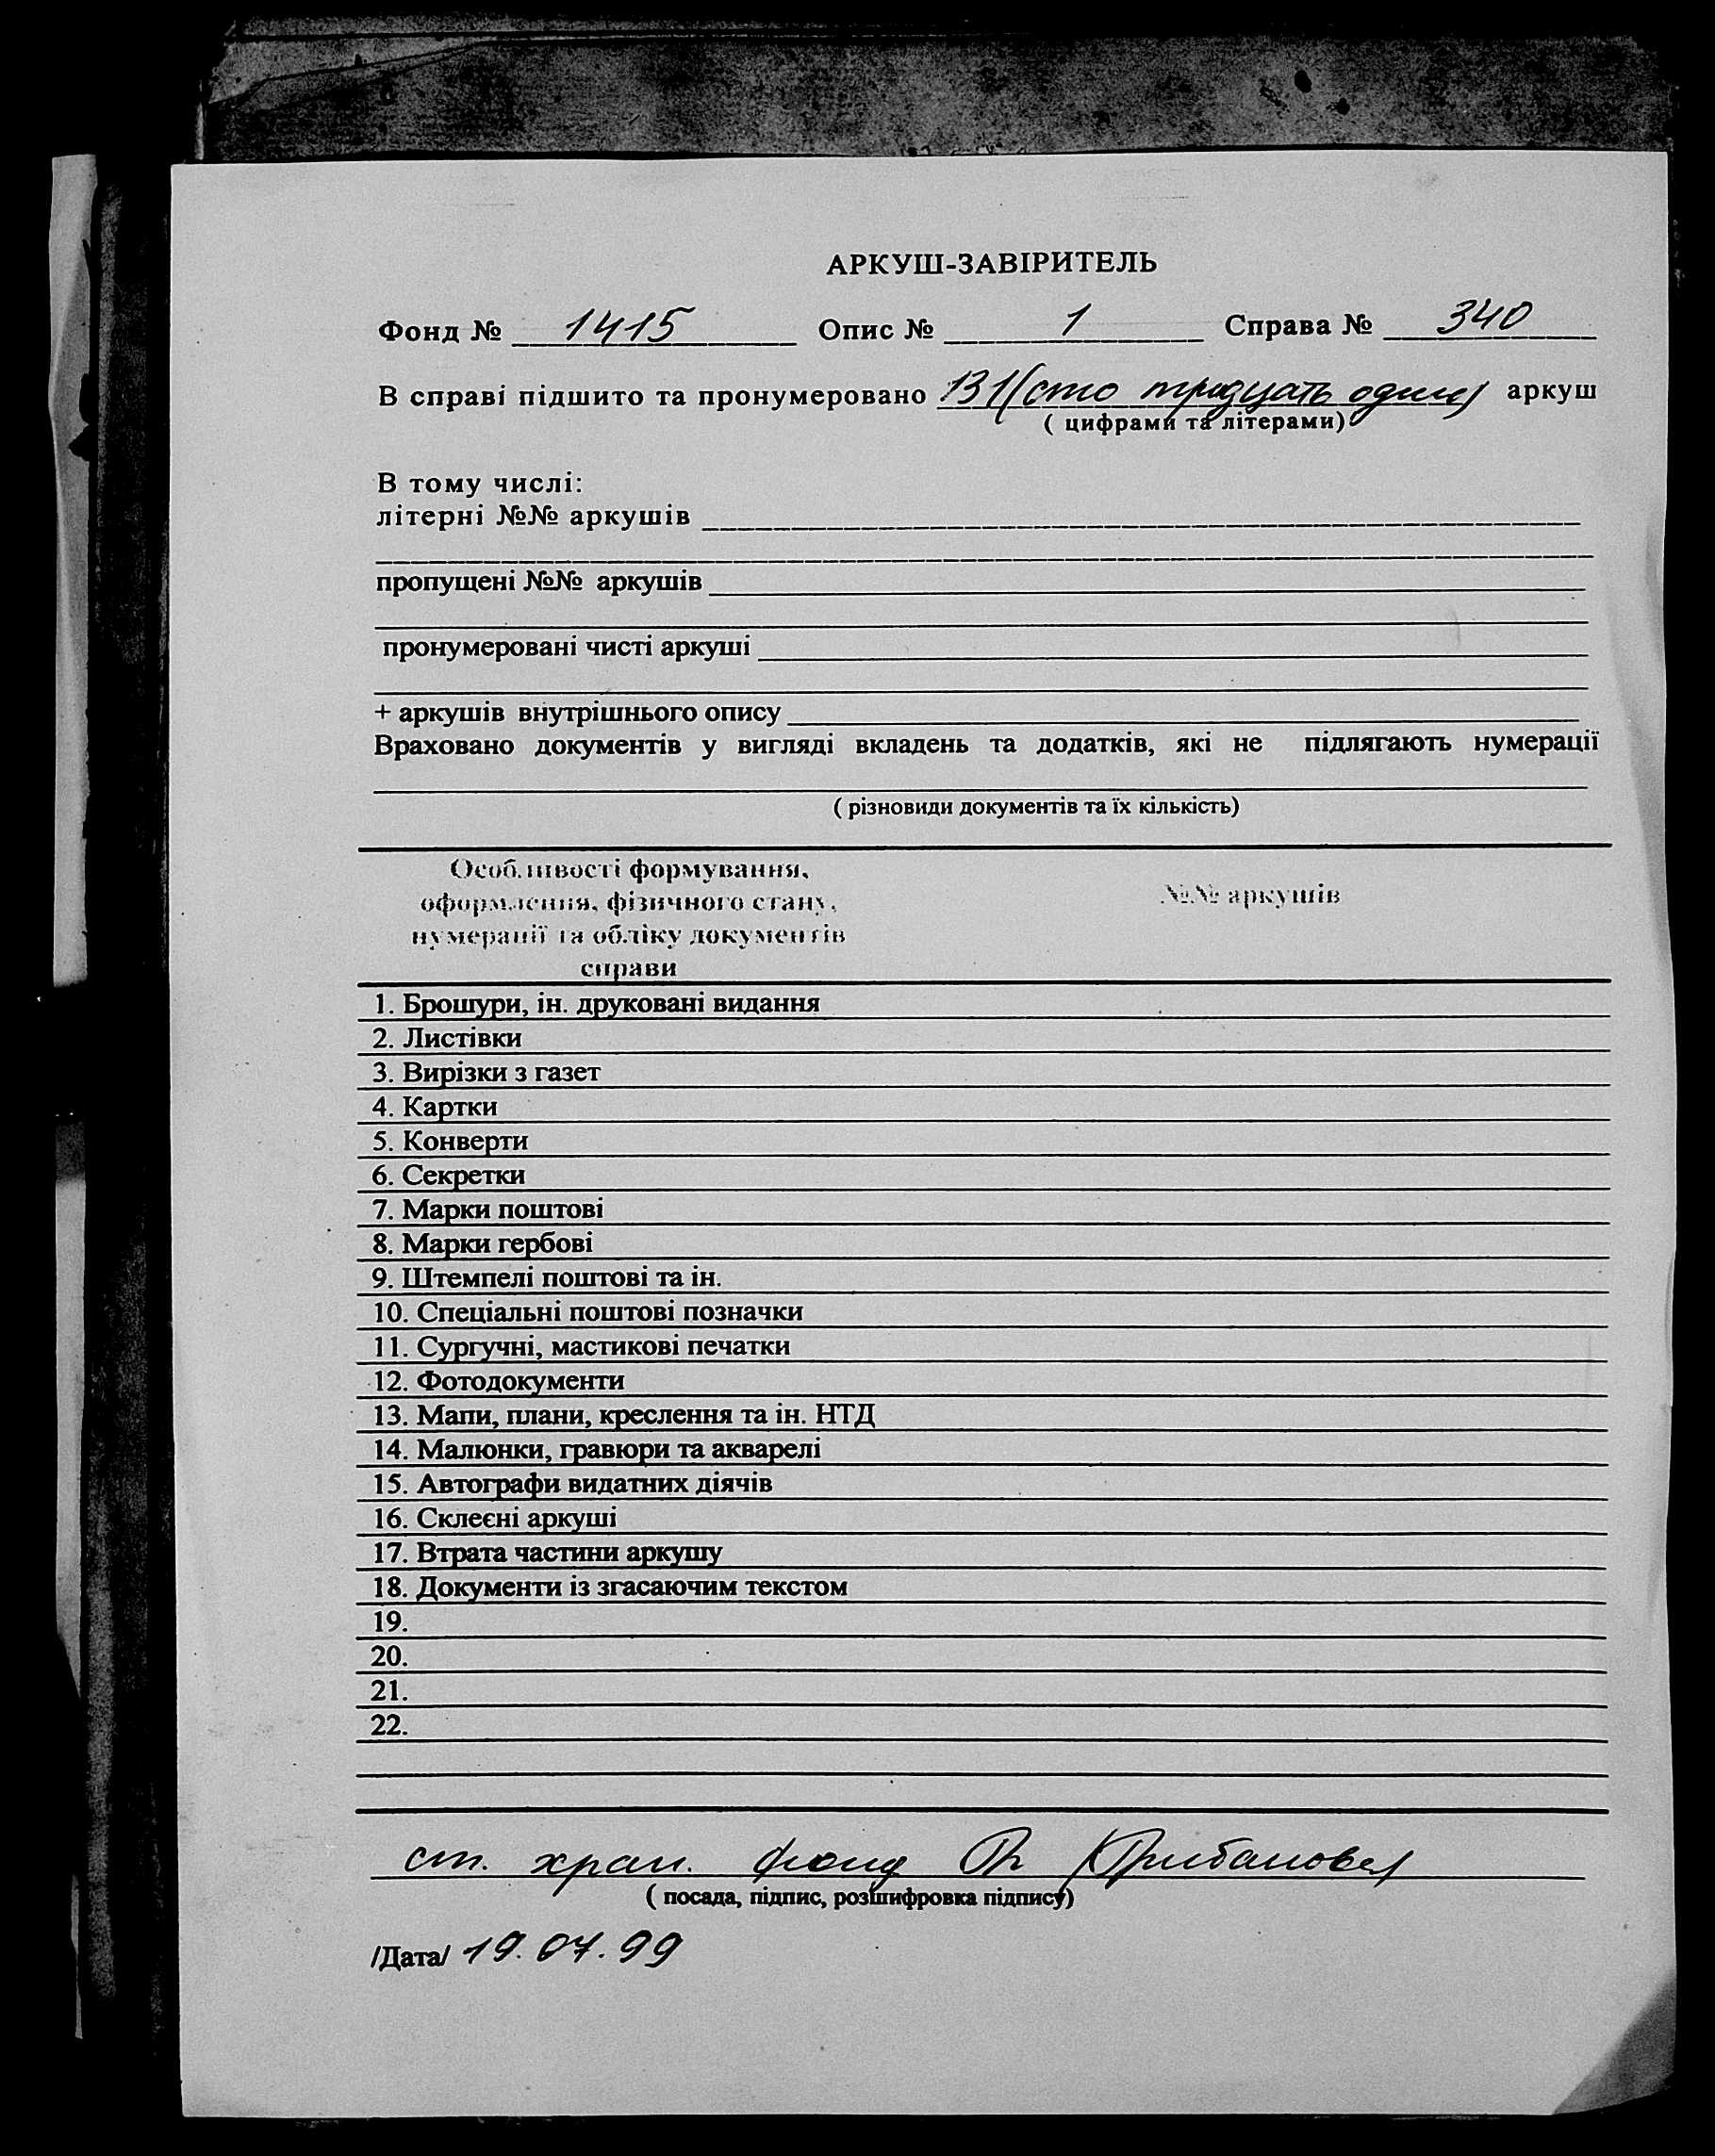 АРКУШ-ЗАВІРИТЕЛЬ
Фонд № 1415 Опис № 1 Справа № 340
В справі підшито та пронумеровано 131 (сто тридцать один) аркуш
( цифрами та літерами)
В тому числі:
літерні №№ аркушів
пропущені №№ аркушів
пронумеровані чисті аркуші
+ аркушів внутрішнього опису
Враховано документів у вигляді вкладень та додатків, які не підлягають нумерації
( різновиди документів та їх кількість)
Особливості формування, №№ аркушів
оформлення, фізичного стану,
нумерації та обліку документів
справи
1. Брошури, ін. друковані видання
2. Листівки
3. Вирізки з газет
4. Картки
5. Конверти
6. Секретки
7. Марки поштові
8. Марки гербові
9. Штемпелі поштові та ін.
10. Спеціальні поштові позначки
11. Сургучні, мастикові печатки
12. Фотодокументи
13. Мапи, плани, креслення та ін. НТД
14. Малюнки, гравюри та акварелі
15. Автографи видатних діячів
16. Склеєні аркуші
17. Втрата частини аркушу
18. Документи із згасаючим текстом
19.
20.
21.
22.
ст. хран. фонд
( посада, підпис, розшифровка підпису)
/Дата/ 19.07.99